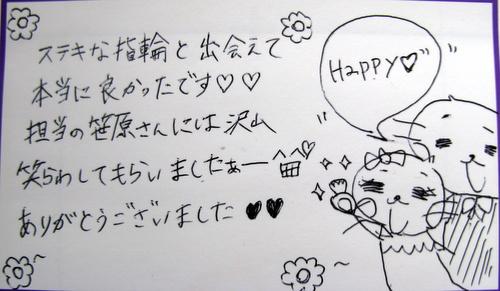 ステキな指輪と出会えて
本当に良かったです♡♡
担当の笹原さんには沢山
笑わしてもらいましたぁー^皿^♡
ありがとうございました♥♥
HAPPY♡